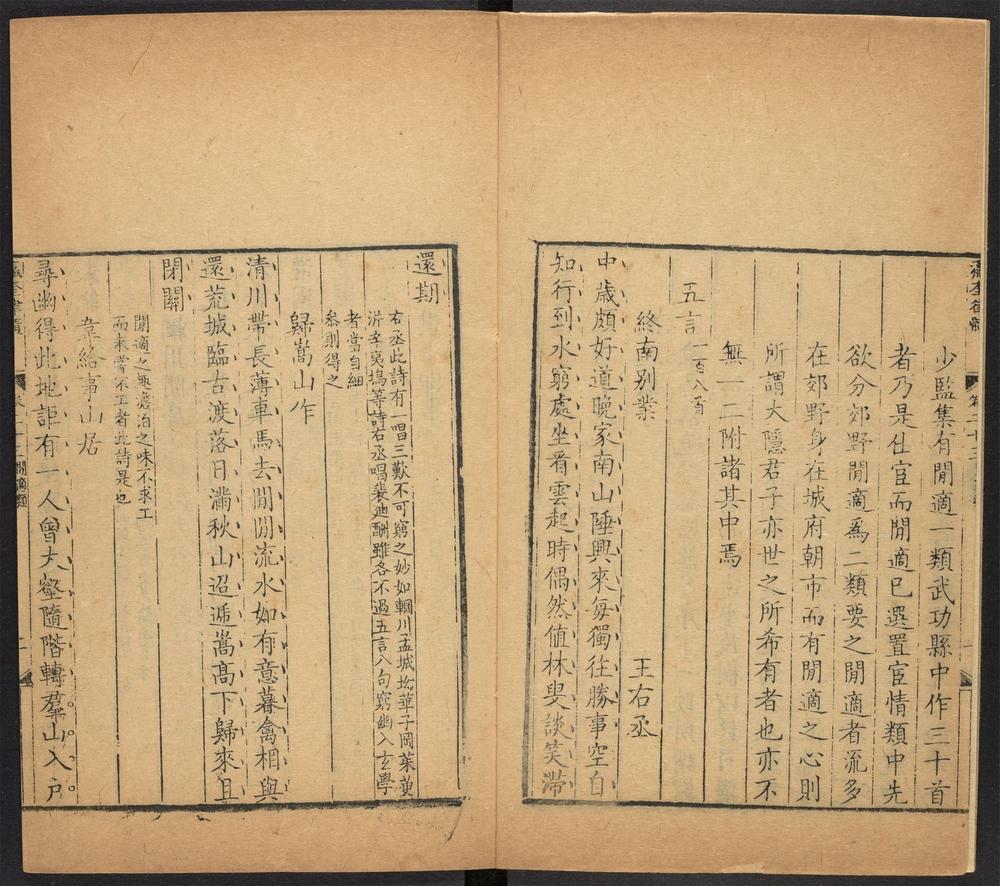 少監集有閒適一類武功縣中作三十首
者乃是仕宦而閒適已選置宦情類中先
欲分郊野閒適為二類要之閒適者流多
在郊野身在城府朝市而有閒適之心則
所謂大隱君子亦世之所希有者也亦不
無一二附諸其中焉
五言一百八首
終南別業 王右丞
中歲頗好道晚家南山陲興來每獨往勝事空自
知行到水窮處坐看雲起時偶然值林叟談笑滯
還期
右丞此詩有一唱三歎不可窮之妙如輞川孟城坳華子岡茱萸
沜辛夷塢等詩右丞唱裴迪酬雖各不過五言八句窮幽入玄學
者當自細
參則得之
歸嵩山作
清川帶長薄車馬去閒閒流水如有意暮禽相與
還荒城臨古渡落日滿秋山迢遞嵩高下歸來且
閉關
閒適之趣澹泊之味不求工
而未嘗不工者此詩是也
韋給事山居
尋幽得此地詎有一人曾大壑隨階轉羣山入戶